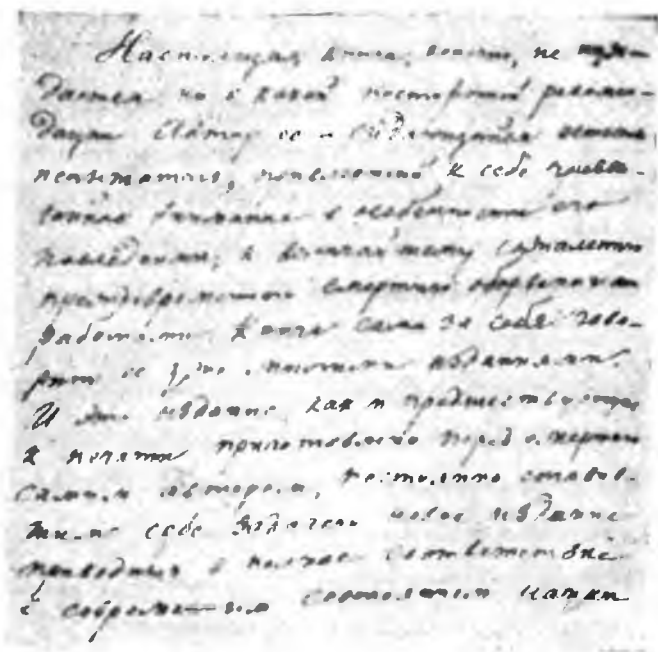 Настоящая книга, конечно, не нуж-
дается ни в какой посторонней рекомен-
дации Автор ее
к себе
внимание в особенности его
последними, к величайшему сожалению
преждевременной смертью
работами Книга сама за себя гово-
рит ее изданиями.
И это издание как и предшествующие
к печати приготовлено перед смертью
самим автором, постоянно ставив-
шим себе задачею новое издание
приводить в полное соответствие
с современным состоянием науки